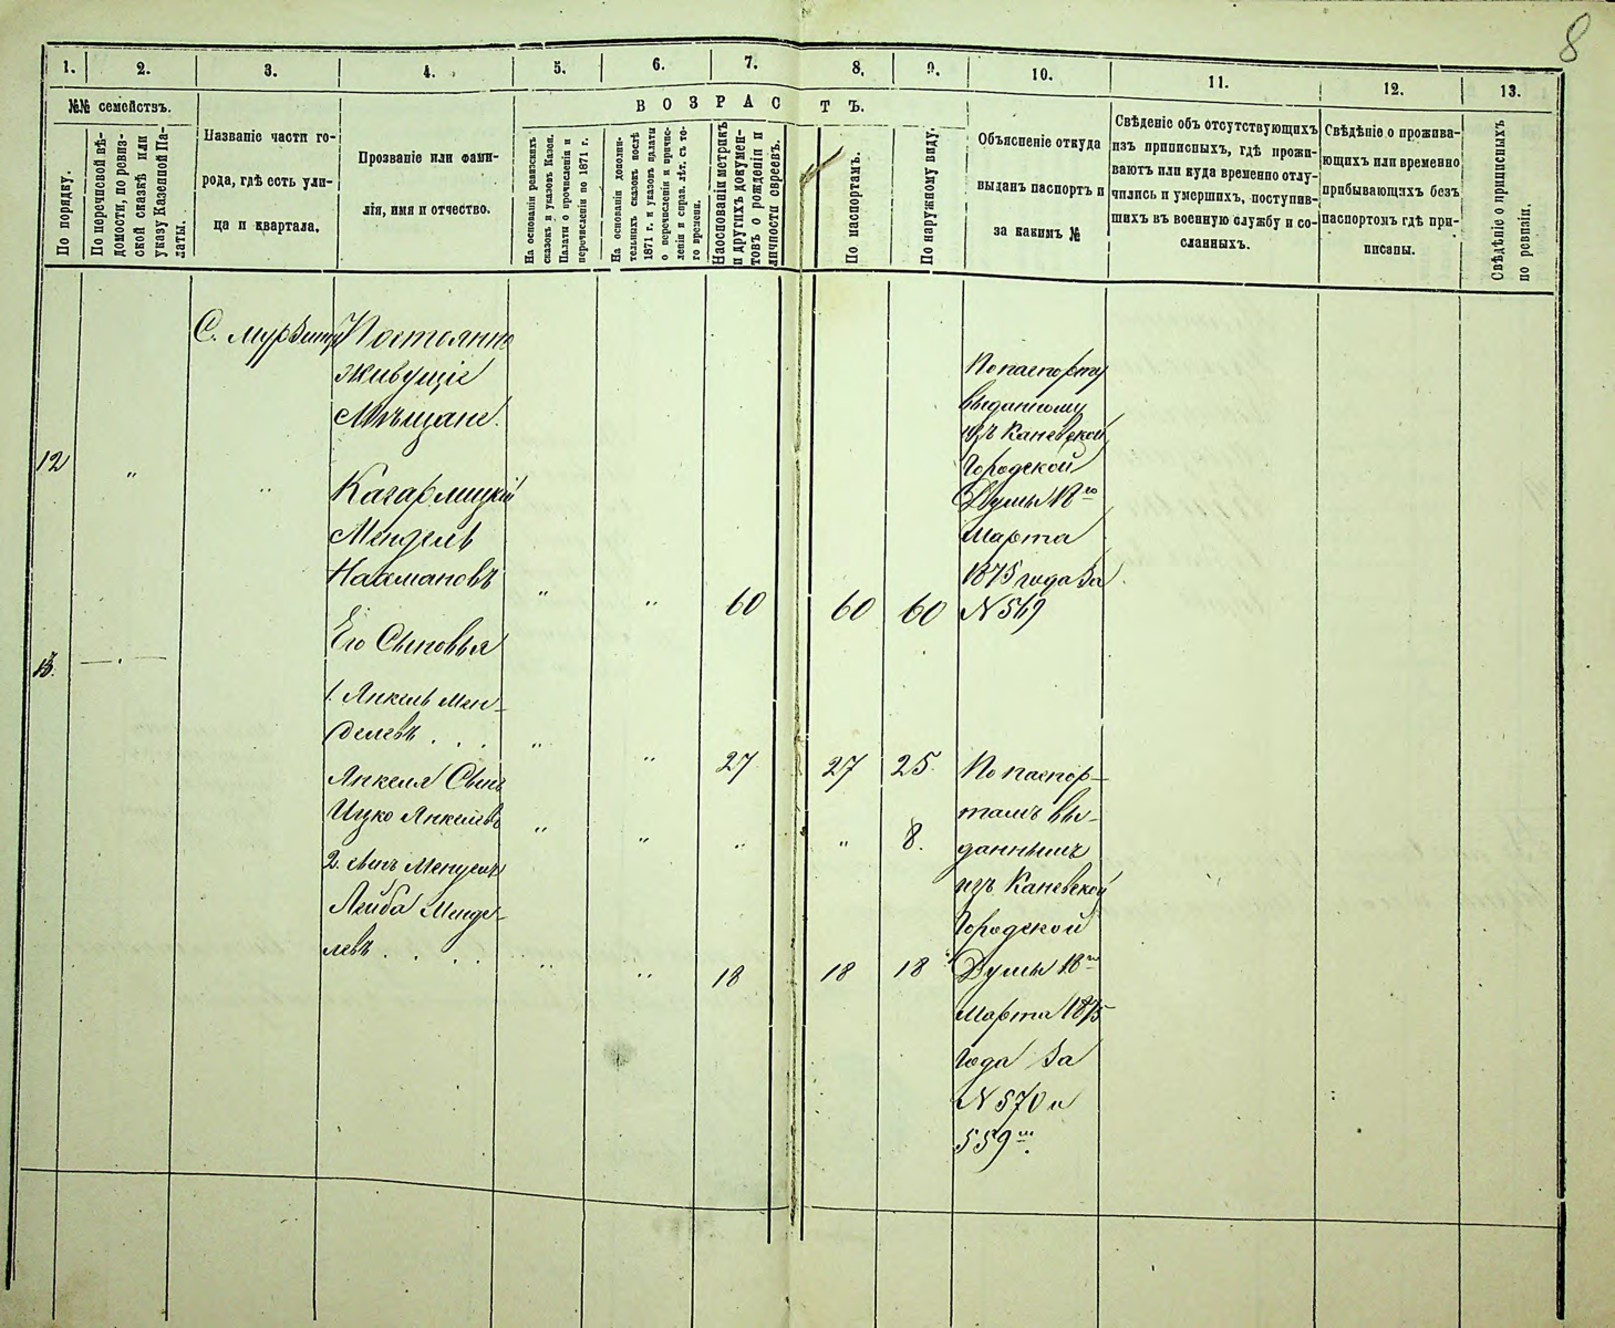 8
1. 2. 3. 4. 5. 6. 7. 8. 9. 10. 11. 12. 13.
№№ семействъ.
ВОЗРАСТЪ.
По порядку.
По перечневой вѣ-
домости, по ревиз-
ской сказкѣ или
указу Казенной Па-
латы.
Названіе части го-
рода, гдѣ есть ули-
ца и квартала.
Прозваніе или фами-
лія, имя и отчество.
На основаніи ревизскихъ
сказокъ и указовъ Казен.
Палаты о причисленіи и
перечисленіи по 1871 г.
На основаніи дополни-
тельныхъ сказокъ послѣ
1871 г. и указовъ палаты
о перечисленіи и причис-
леніи и справ. лѣт. съ то-
го времени.
На основаніи метрикъ
и другихъ докумен-
товъ о рожденіи и
личности евреевъ.
По паспортамъ.
По наружному виду.
Объясненіе откуда
выданъ паспортъ и
за какимъ №
Свѣденіе объ отсутствующихъ
изъ приписныхъ, гдѣ прожи-
ваютъ или куда временно отлу-
чились и умершихъ, поступив-
шихъ въ военную службу и со-
сланныхъ.
Свѣдѣніе о прожива-
ющихъ или временно
прибывающихъ безъ
паспортомъ гдѣ при-
писаны.
Свѣдѣніе о приписныхъ
по ревизіи.
С.
Постоянно
живущіе
Мѣщане.
12 " "
Кагарлицкій
Мендель
Нахмановъ " " 60 60 60
По паспорту
выданному
изъ Каневской
Городской
Думы 18го
Марта
1875 года за
N 569
Его Сыновья
13.
1. Янкель Мен-
делевъ . . . " " 27 27 25.
Янкеля Сынъ
Ицко Янкелевъ " " " " 8.
2. сынъ Менделя
Лейба Менде-
левъ . . . . " " 18 18 18
По паспор-
тамъ вы-
даннымъ
изъ Каневской
Городской
Думы 18го
Марта 1875
Года за
N 570 и
559м.